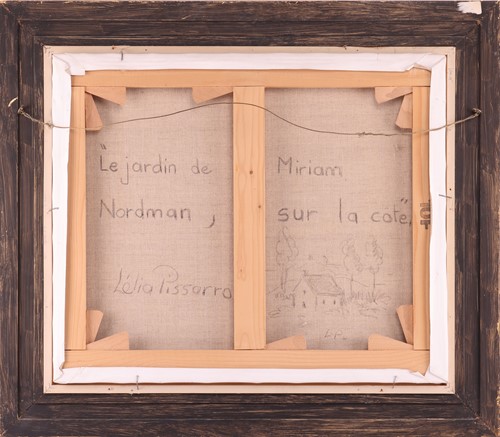 "Le jardin de Miriam
Nordman, sur la côte".
Lélia Pissarro
L.P.